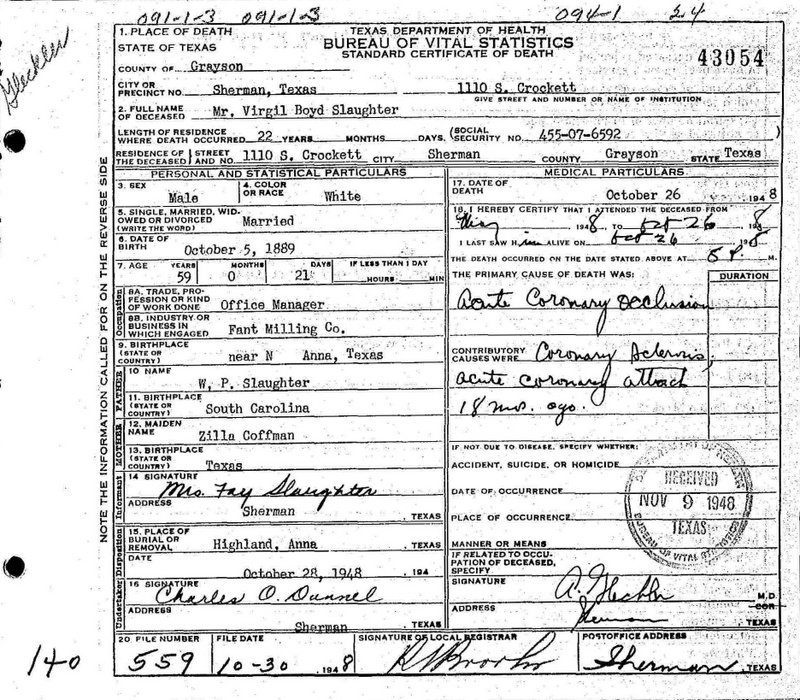 091-1-3 091-1-3 094-1 24
Fleckler
1. PLACE OF DEATH
STATE OF TEXAS
TEXAS DEPARTMENT OF HEALTH
BUREAU OF VITAL STATISTICS
STANDARD CERTIFICATE OF DEATH
43054
COUNTY OF Grayson
CITY OR
PRECINCT NO. Sherman, Texas 1110 S. Crockett
GIVE STREET AND NUMBER OR NAME OF INSTITUTION
2. FULL NAME
OF DECEASED Mr. Virgil Boyd Slaughter
LENGTH OF RESIDENCE
WHERE DEATH OCCURRED 22 YEARS MONTHS DAYS. (SOCIAL
SECURITY NO. 455-07-6592 )
RESIDENCE OF STREET
THE DECEASED AND NO. 1110 S. Crockett CITY Sherman COUNTY Grayson STATE Texas
NOTE THE INFORMATION CALLED FOR ON THE REVERSE SIDE
PERSONAL AND STATISTICAL PARTICULARS
3. SEX
Male
4. COLOR
OR RACE White
5. SINGLE, MARRIED, WID-
OWED OR DIVORCED
(WRITE THE WORD) Married
6. DATE OF
BIRTH October 5, 1889
7. AGE YEARS MONTHS DAYS IF LESS THAN 1 DAY
59 0 21 HOURS MIN
Occupation
8A. TRADE, PRO-
FESSION OR KIND
OF WORK DONE Office Manager
8B. INDUSTRY OR
BUSINESS IN
WHICH ENGAGED Fant Milling Co.
9. BIRTHPLACE
(STATE OR
COUNTRY) near N Anna, Texas
FATHER
10 NAME
W. P. Slaughter
11. BIRTHPLACE
(STATE OR
COUNTRY) South Carolina
MOTHER
12. MAIDEN
NAME Zilla Coffman
13. BIRTHPLACE
(STATE OR
COUNTRY) Texas
Informant
14 SIGNATURE
Mrs. Fay Slaughter
ADDRESS
Sherman , TEXAS
Disposition
15. PLACE OF
BURIAL OR
REMOVAL Highland, Anna , TEXAS
DATE
October 28, 1948 . 194
Undertaker
16 SIGNATURE
Charles O. Dannel
ADDRESS
Sherman , TEXAS
MEDICAL PARTICULARS
17. DATE OF
DEATH October 26 194 8
18. I HEREBY CERTIFY THAT I ATTENDED THE DECEASED FROM
May 194 8, TO Oct 26 194 8
I LAST SAW H im ALIVE ON Oct 26 194 8
THE DEATH OCCURRED ON THE DATE STATED ABOVE AT 5 P. M.
THE PRIMARY CAUSE OF DEATH WAS: DURATION
Acute Coronary Occlusion
CONTRIBUTORY
CAUSES WERE Coronary Sclerosis,
acute coronary attack
18 mos. ago.
IF NOT DUE TO DISEASE, SPECIFY WHETHER:
ACCIDENT, SUICIDE, OR HOMICIDE
DATE OF OCCURRENCE
PLACE OF OCCURRENCE
MANNER OR MEANS
IF RELATED TO OCCU-
PATION OF DECEASED,
SPECIFY
DEPARTMENT OF HEALTH
RECEIVED
NOV 9 1948
TEXAS
BUREAU OF VITAL STATISTICS
SIGNATURE M.D.
COR.
ADDRESS Sherman TEXAS
20 FILE NUMBER FILE DATE SIGNATURE OF LOCAL REGISTRAR POSTOFFICE ADDRESS
559 10-30 194 8 Sherman , TEXAS
140